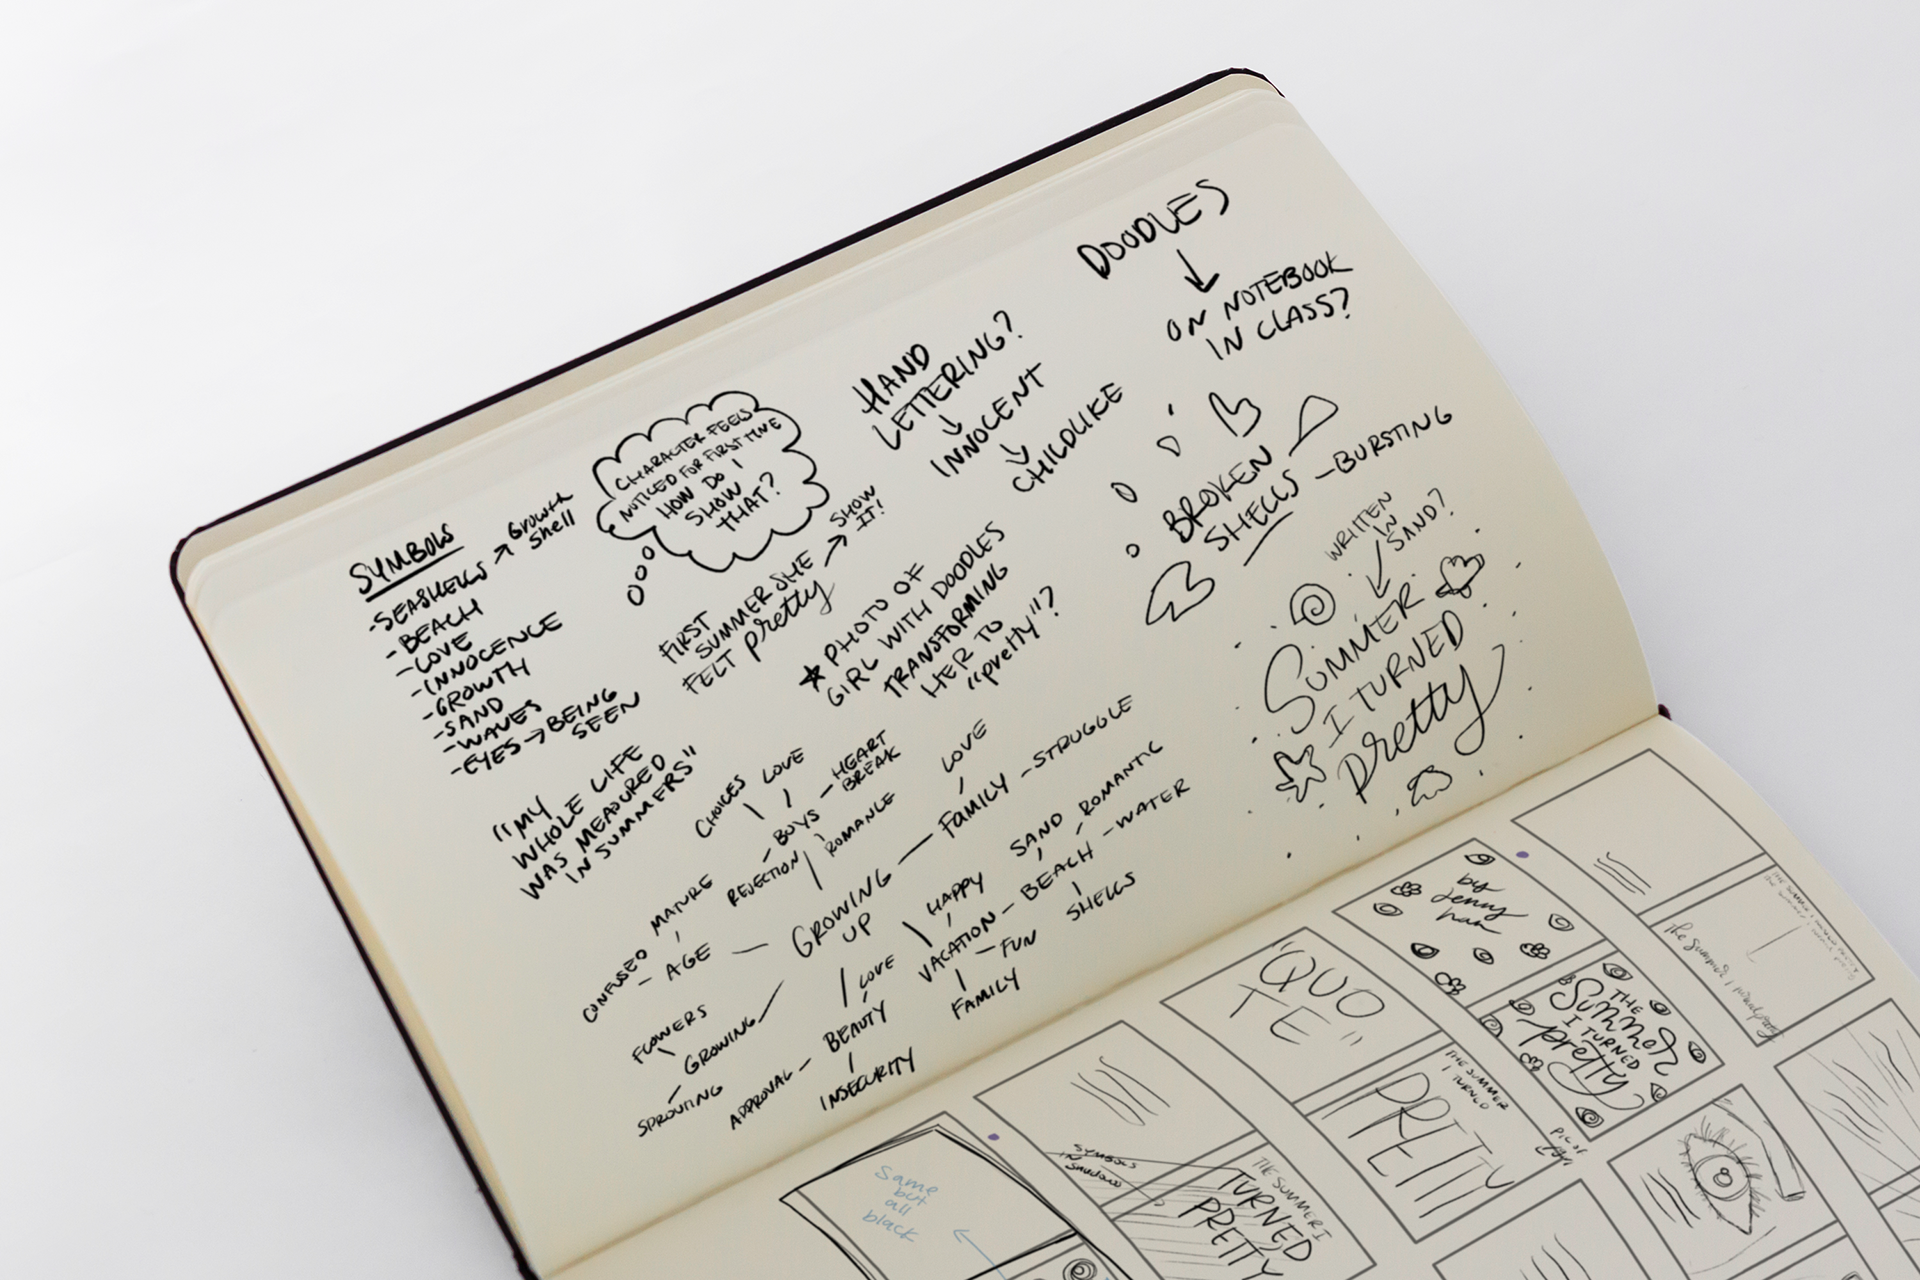 DOODLES
ON NOTEBOOK
IN CLASS?
HAND
LETTERING?
INNOCENT
CHILDLIKE
CHARACTER FEELS
NOTICED FOR FIRST TIME
HOW DO I
SHOW
THAT?
BROKEN
SHELLS - BURSTING
SYMBOLS
-SEASHELLS → Growth
shell
-BEACH
-LOVE
-INNOCENCE
-GROWTH
-SAND
-WAVES
-EYES → BEING
SEEN
FIRST
SUMMER SHE
FELT pretty
SHOW
IT!
★ PHOTO OF
GIRL WITH DOODLES
TRANSFORMING
HER TO
"pretty"?
WRITTEN
IN
SAND?
SUMMER
I TURNED
pretty
"MY
WHOLE LIFE
WAS MEASURED
IN SUMMERS"
CHOICES
LOVE
BOYS - HEART
BREAK
REJECTION
ROMANCE
LOVE
FAMILY - STRUGGLE
MATURE
CONFUSED
- AGE
GROWING
UP
HAPPY
VACATION - BEACH - WATER
SAND
ROMANTIC
SHELLS
- FUN
FAMILY
FLOWERS
GROWING
SPROUTING
LOVE
BEAUTY
APPROVAL
INSECURITY
by
Jenny
han
"QUO
TE"
THE
Summer
I TURNED
pretty
THE SUMMER
I TURNED
PRETTY
THE SUMMER I
TURNED
PRETTY
SYMBOLS
IN
Same
but
all
black
The Summer I